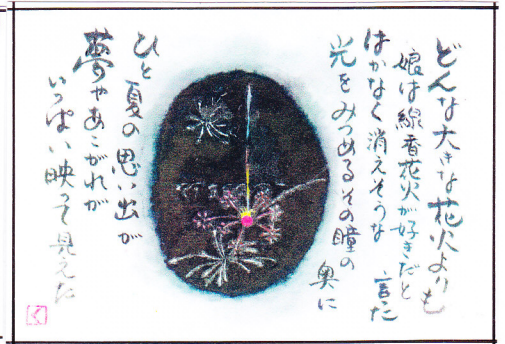 どんな大きな花火よりも
娘は線香花火が好きだと
言った
はかなく消えそうな
光をみつめるその瞳の
奥に
ひと夏の思い出が
夢やあこがれが
いっぱい映って見えた
く